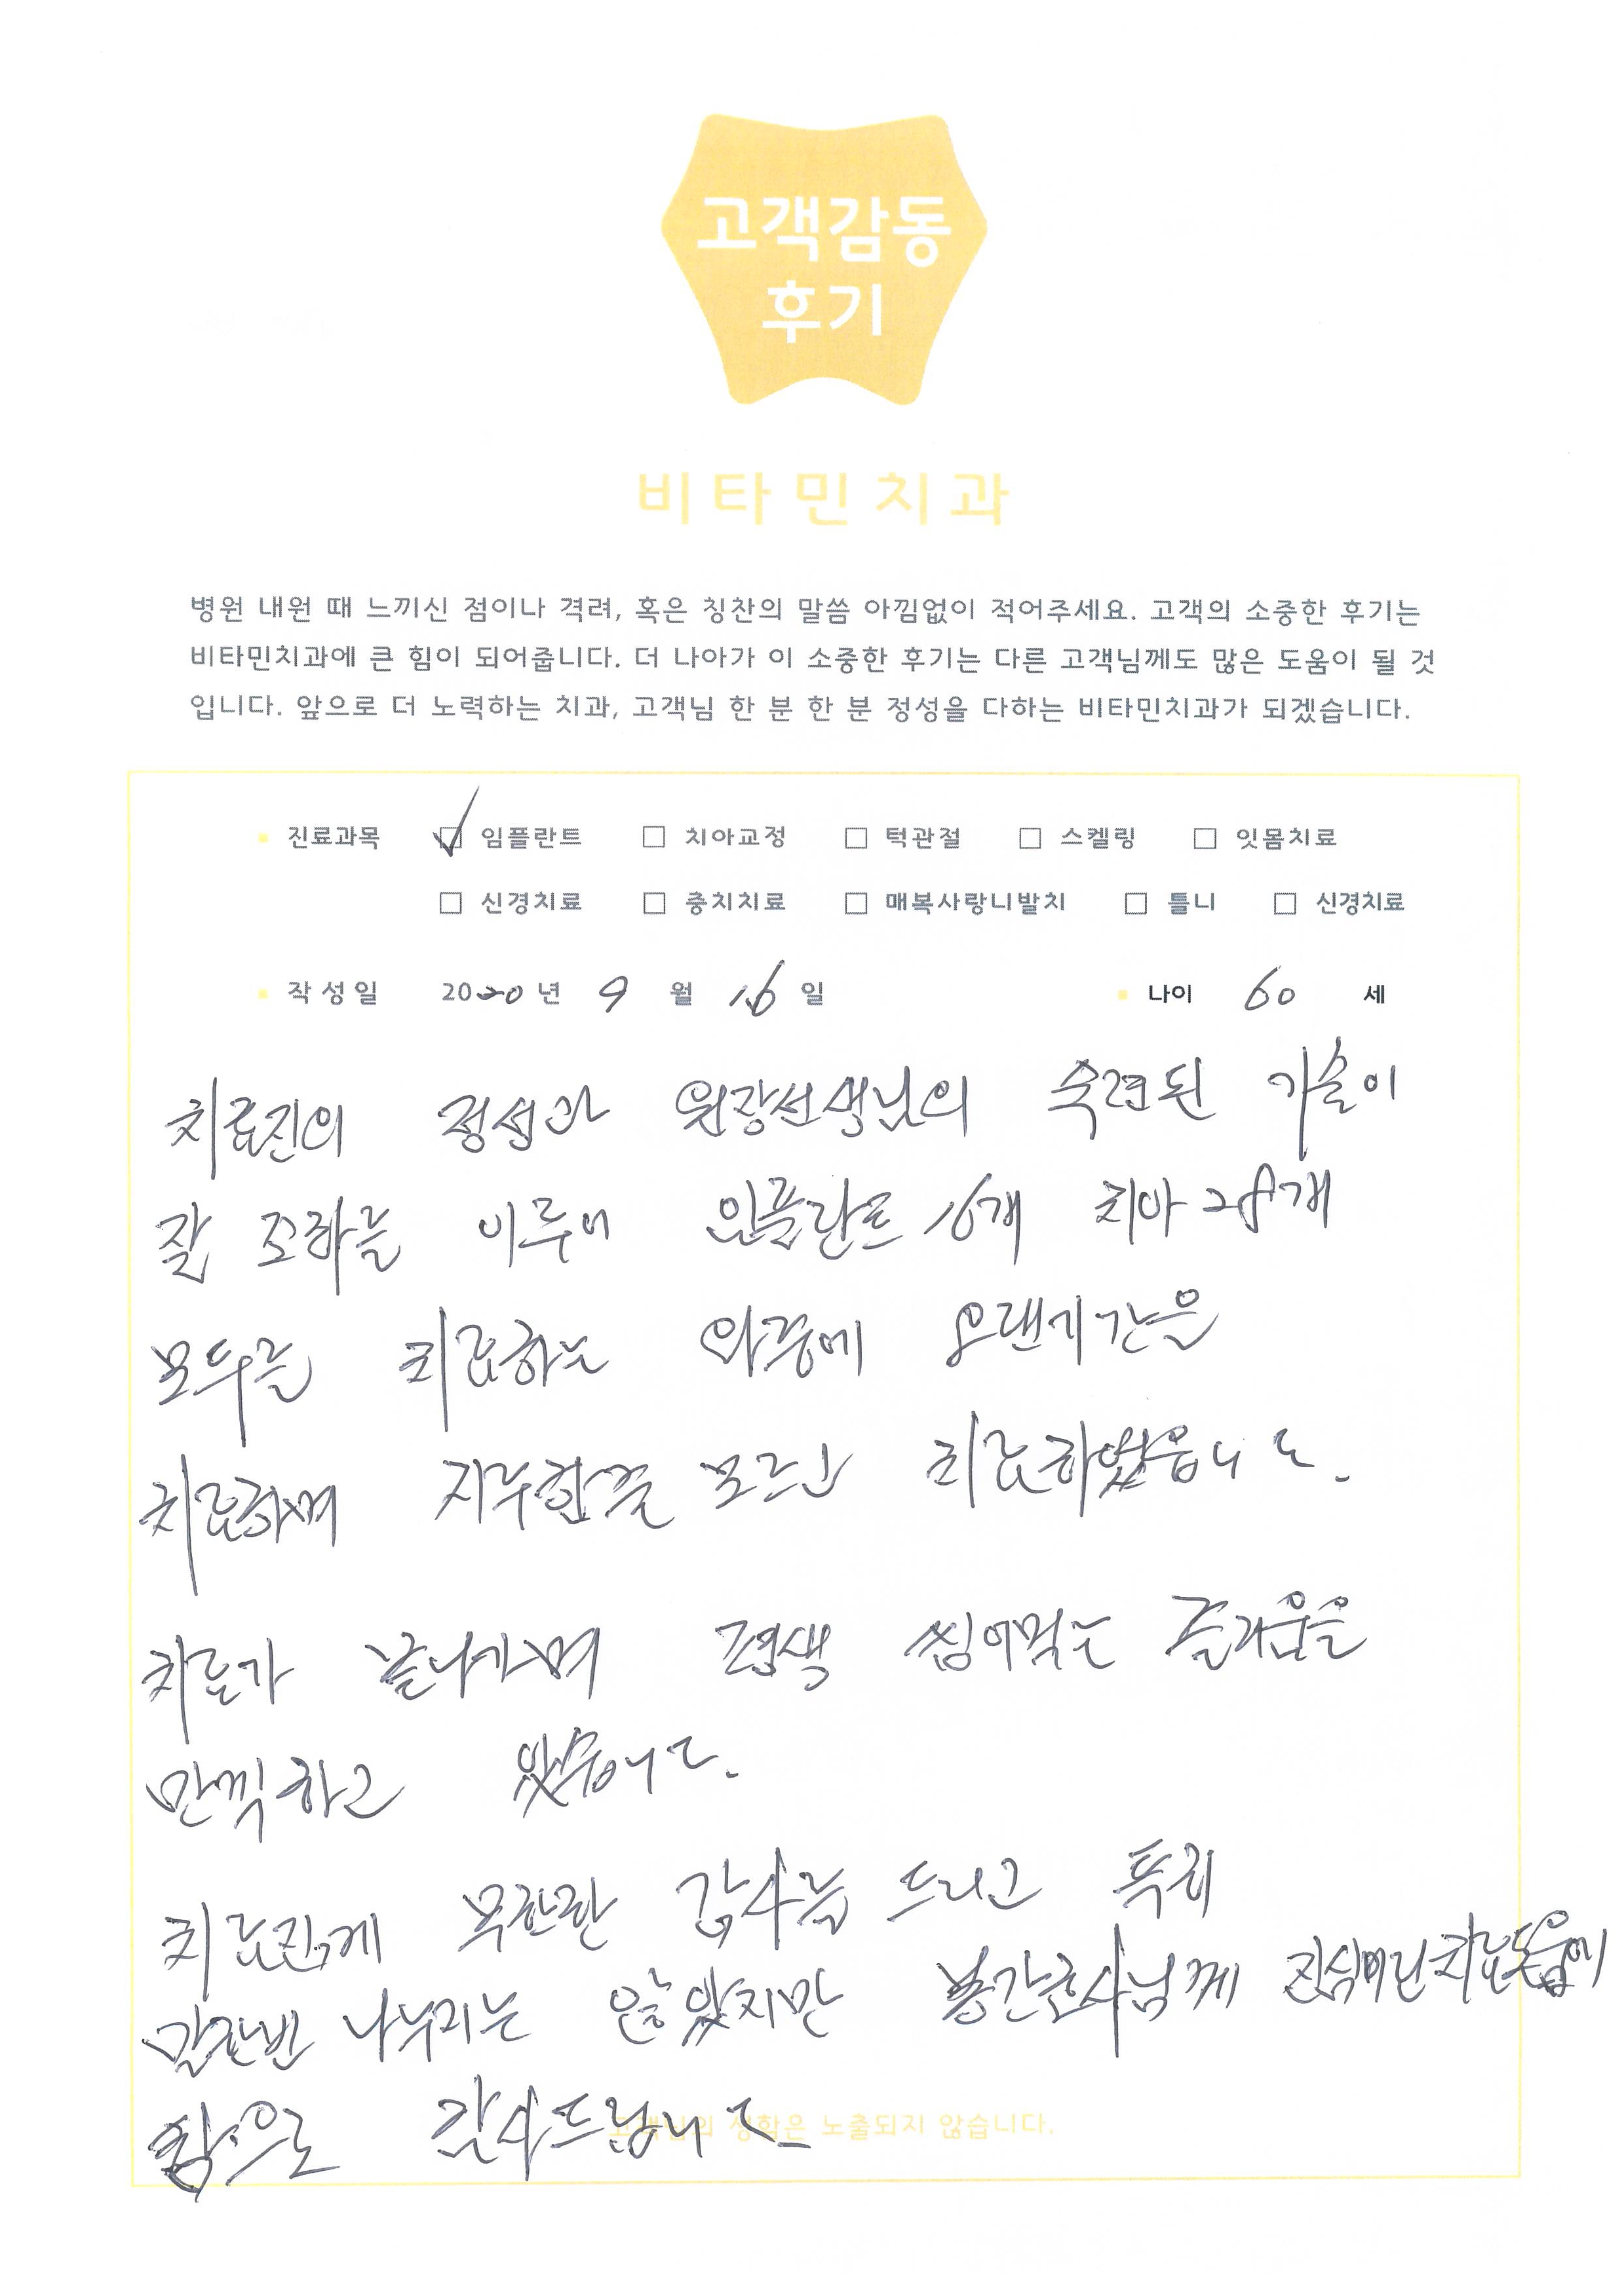 고객감동
후기
비타민치과
병원 내원 때 느끼신 점이나 격려, 혹은 칭찬의 말씀 아낌없이 적어주세요. 고객의 소중한 후기는
비타민치과에 큰 힘이 되어줍니다. 더 나아가 이 소중한 후기는 다른 고객님께도 많은 도움이 될 것
입니다. 앞으로 더 노력하는 치과, 고객님 한 분 한 분 정성을 다하는 비타민치과가 되겠습니다.
진료과목 ☑ 임플란트 □ 치아교정 □ 턱관절 □ 스켈링 □ 잇몸치료
□ 신경치료 □ 충치치료 □ 매복사랑니발치 □ 틀니 □ 신경치료
작성일 2020년 9 월 16 일 나이 60 세
치료진의 정성과 원장선생님의 숙련된 기술이
잘 조화를 이루어 임플란트 16개 치아 28개
모두를 치료하는 와중에 오랜기간을
치료하며 지루함을 모르고 치료하였습니다.
치료가 끝나가며 평생 씹어먹는 즐거움을
만끽하고 있습니다.
치료진께 무한한 감사를 드리고 특히
말한번 나누지는 않았지만 간호사님께 진심어린 치료도움에
참으로 감사드립니다
고객님의 성함은 노출되지 않습니다.